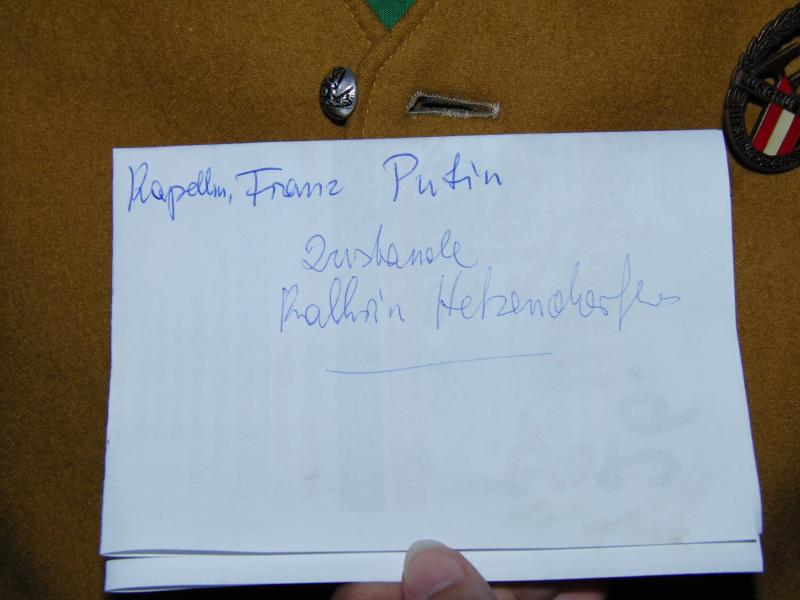 Kapellm. Franz Putin
Zustande
Kathrin Hetzendorfer